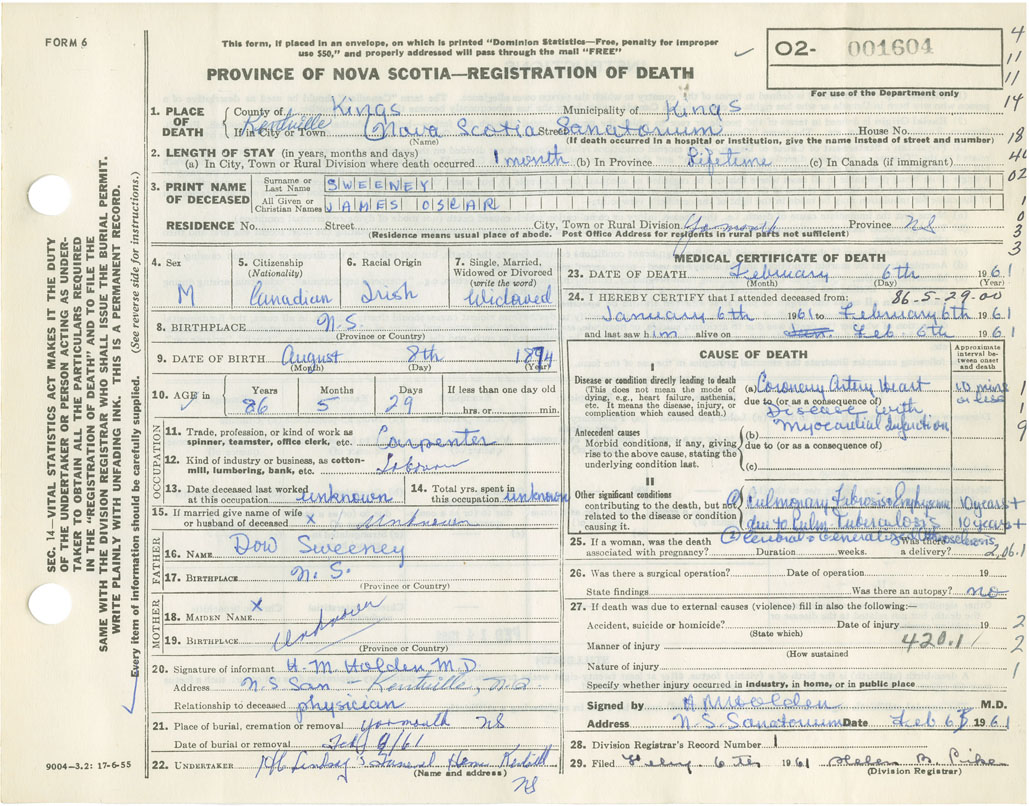 FORM 6
This form, if placed in an envelope, on which is printed "Dominion Statistics—Free, penalty for improper
use $50," and properly addressed will pass through the mail "FREE"
PROVINCE OF NOVA SCOTIA—REGISTRATION OF DEATH
02- 001604
For use of the Department only
4
11
11
14
18
44
02
1
0
3
3
SEC. 14—VITAL STATISTICS ACT MAKES IT THE DUTY
OF THE UNDERTAKER OR PERSON ACTING AS UNDER-
TAKER TO OBTAIN ALL THE PARTICULARS REQUIRED
IN THE "REGISTRATION OF DEATH" AND TO FILE THE
SAME WITH THE DIVISION REGISTRAR WHO SHALL ISSUE THE BURIAL PERMIT.
WRITE PLAINLY WITH UNFADING INK. THIS IS A PERMANENT RECORD.
Every item of information should be carefully supplied. (See reverse side for instructions.)
1. PLACE OF DEATH County of Kings Municipality of Kings
If in City or Town Kentville (Nova Scotia Street Sanatorium House No.
(Name) (If death occurred in a hospital or institution, give the name instead of street and number)
2. LENGTH OF STAY (in years, months and days)
(a) In City, Town or Rural Division where death occurred 1 month (b) In Province Lifetime (c) In Canada (if immigrant)
3. PRINT NAME OF DECEASED Surname or Last Name SWEENEY
All Given or Christian Names JAMES OSCAR
RESIDENCE No. Street City, Town or Rural Division Yarmouth Province NS
(Residence means usual place of abode. Post Office Address for residents in rural parts not sufficient)
4. Sex M
5. Citizenship (Nationality) Canadian
6. Racial Origin Irish
7. Single, Married, Widowed or Divorced (write the word) Widowed
8. BIRTHPLACE N.S.
(Province or Country)
9. DATE OF BIRTH August 8th 1874
(Month) (Day) (Year)
10. AGE in Years 86 Months 5 Days 29 If less than one day old hrs. or min.
OCCUPATION
11. Trade, profession, or kind of work as spinner, teamster, office clerk, etc. Carpenter
12. Kind of industry or business, as cotton-mill, lumbering, bank, etc.
13. Date deceased last worked at this occupation unknown
14. Total yrs. spent in this occupation unknown
15. If married give name of wife or husband of deceased x Unknown
FATHER
16. NAME Dow Sweeney
17. BIRTHPLACE N.S.
(Province or Country)
MOTHER
18. MAIDEN NAME x
19. BIRTHPLACE Unknown
(Province or Country)
20. Signature of informant H.M. Holden, M.D
Address N.S. San - Kentville, N.S.
Relationship to deceased physician
21. Place of burial, cremation or removal Yarmouth NS
Date of burial or removal Feb /61
22. UNDERTAKER Lindsay's Funeral Home Kentville
(Name and address)
NS
9004—3.2: 17-6-55
MEDICAL CERTIFICATE OF DEATH
23. DATE OF DEATH February 6th 1961
(Month) (Day) (Year)
24. I HEREBY CERTIFY that I attended deceased from: 86-5-29-00
January 6th 1961 to February 6th 1961
and last saw him alive on Jan. Feb 6th 1961
CAUSE OF DEATH
Approximate interval between onset and death
I
Disease or condition directly leading to death
(This does not mean the mode of dying, e.g., heart failure, asthenia, etc. It means the disease, injury, or complication which caused death.)
(a) Coronary Artery Heart 10 mins or less
due to (or as a consequence of)
Disease with
Myocardial Infarction
Antecedent causes
Morbid conditions, if any, giving rise to the above cause, stating the underlying condition last.
(b)
due to (or as a consequence of)
(c)
II
Other significant conditions
contributing to the death, but not related to the disease or condition causing it.
Pulmonary Fibrosis & Emphysema 10 years +
due to Pulm Tuberculosis 10 years +
Cerebral & Generalized
25. If a woman, was the death associated with pregnancy? Duration weeks. Was there a delivery? 2,06.1
26. Was there a surgical operation? Date of operation 19
State findings Was there an autopsy? no
27. If death was due to external causes (violence) fill in also the following:—
Accident, suicide or homicide? Date of injury 19
(State which)
Manner of injury 420.1/
(How sustained
Nature of injury
Specify whether injury occurred in industry, in home, or in public place
Signed by HM Holden M.D.
Address N.S. Sanatorium Date Feb 6 1961
28. Division Registrar's Record Number 1
29. Filed 6th 1961 Helen B. Pike
(Division Registrar)
1
1
9
2
2
1